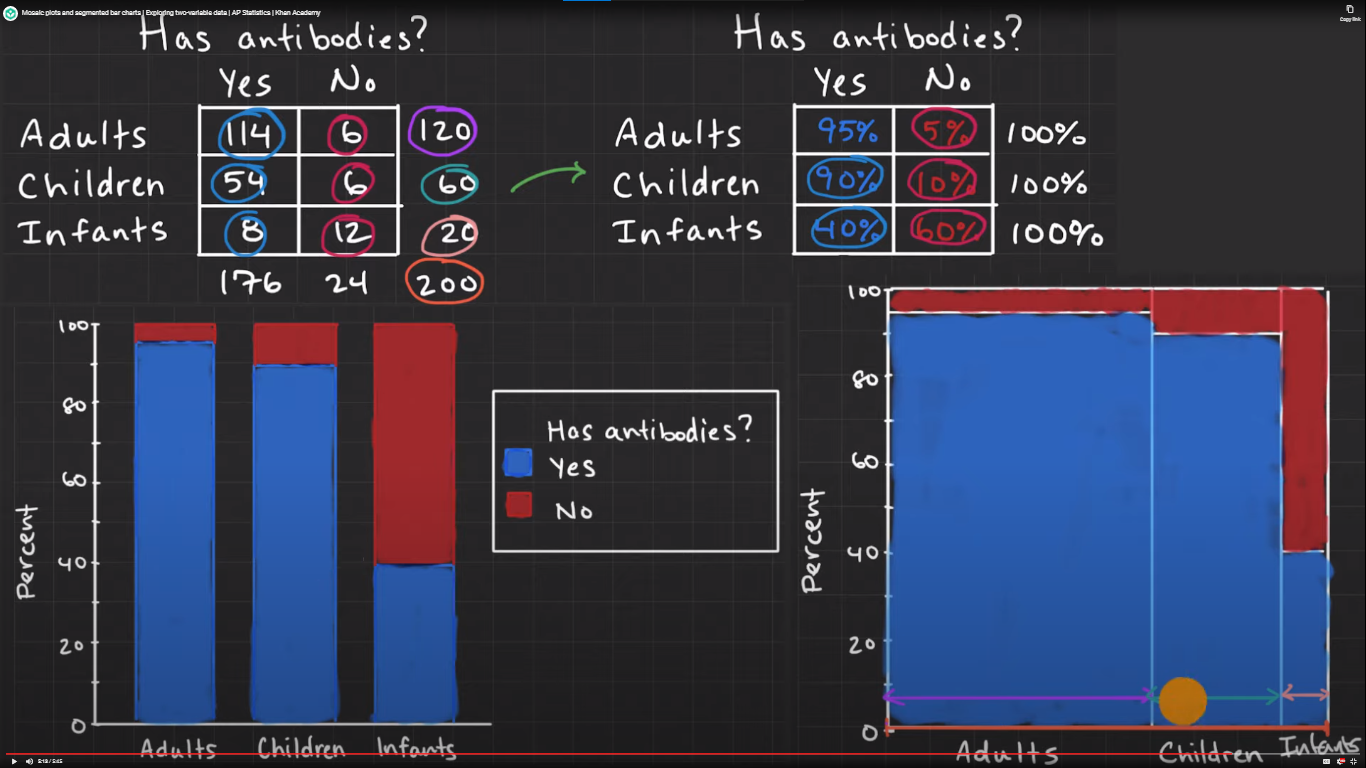 Mosaic plots and segmented bar charts | Exploring two-variable data | AP Statistics | Khan Academy
Copy link
Has antibodies?
Yes No
Adults 114 6 120
Children 54 6 60
Infants 8 12 20
176 24 200
Has antibodies?
Yes No
Adults 95% 5% 100%
Children 90% 10% 100%
Infants 40% 60% 100%
Percent
100
80
60
40
20
0
Adults Children Infants
Has antibodies?
Yes
No
Percent
100
80
60
40
20
0
Adults Children Infants
5:19 / 5:45